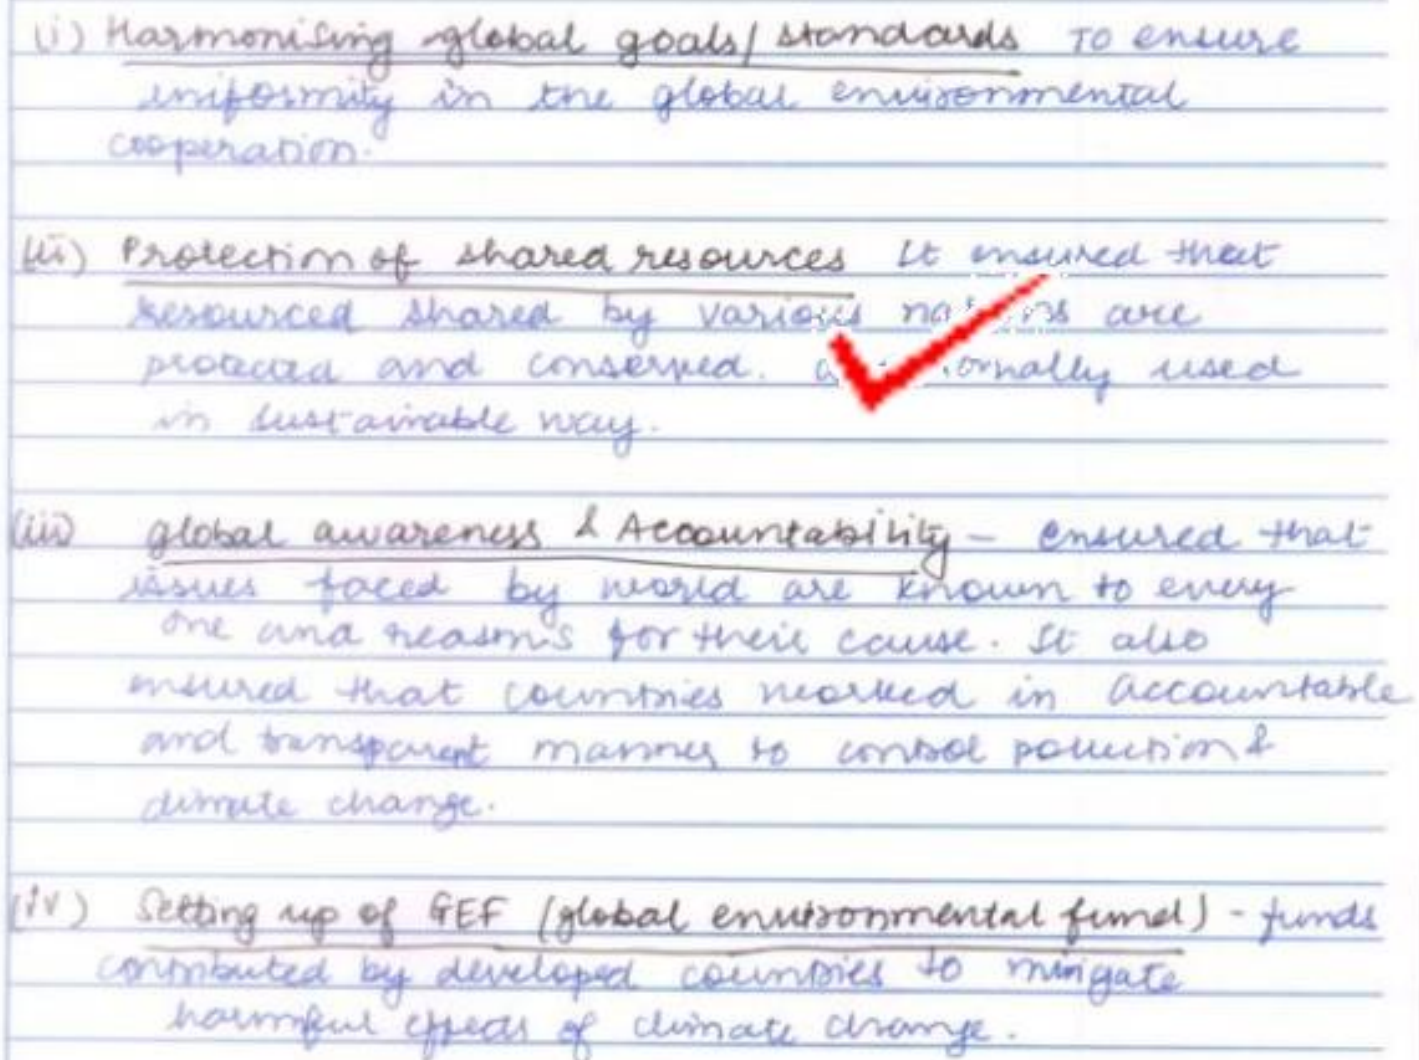 (i) Harmonising global goals/standards To ensure
uniformity in the global environmental
cooperation.
(ii) Protection of shared resources It ensured that
resourced shared by various are
protected and conserved. used
in sustainable way.
(iii) global awareness & Accountability - Ensured that
issues faced by world are known to every
one and reasons for their cause. It also
ensured that countries worked in accountable
and transparent manner to control pollution &
climate change.
(iv) Setting up of GEF (global environmental fund) - funds
contributed by developed countries to mitigate
harmful effects of climate change.